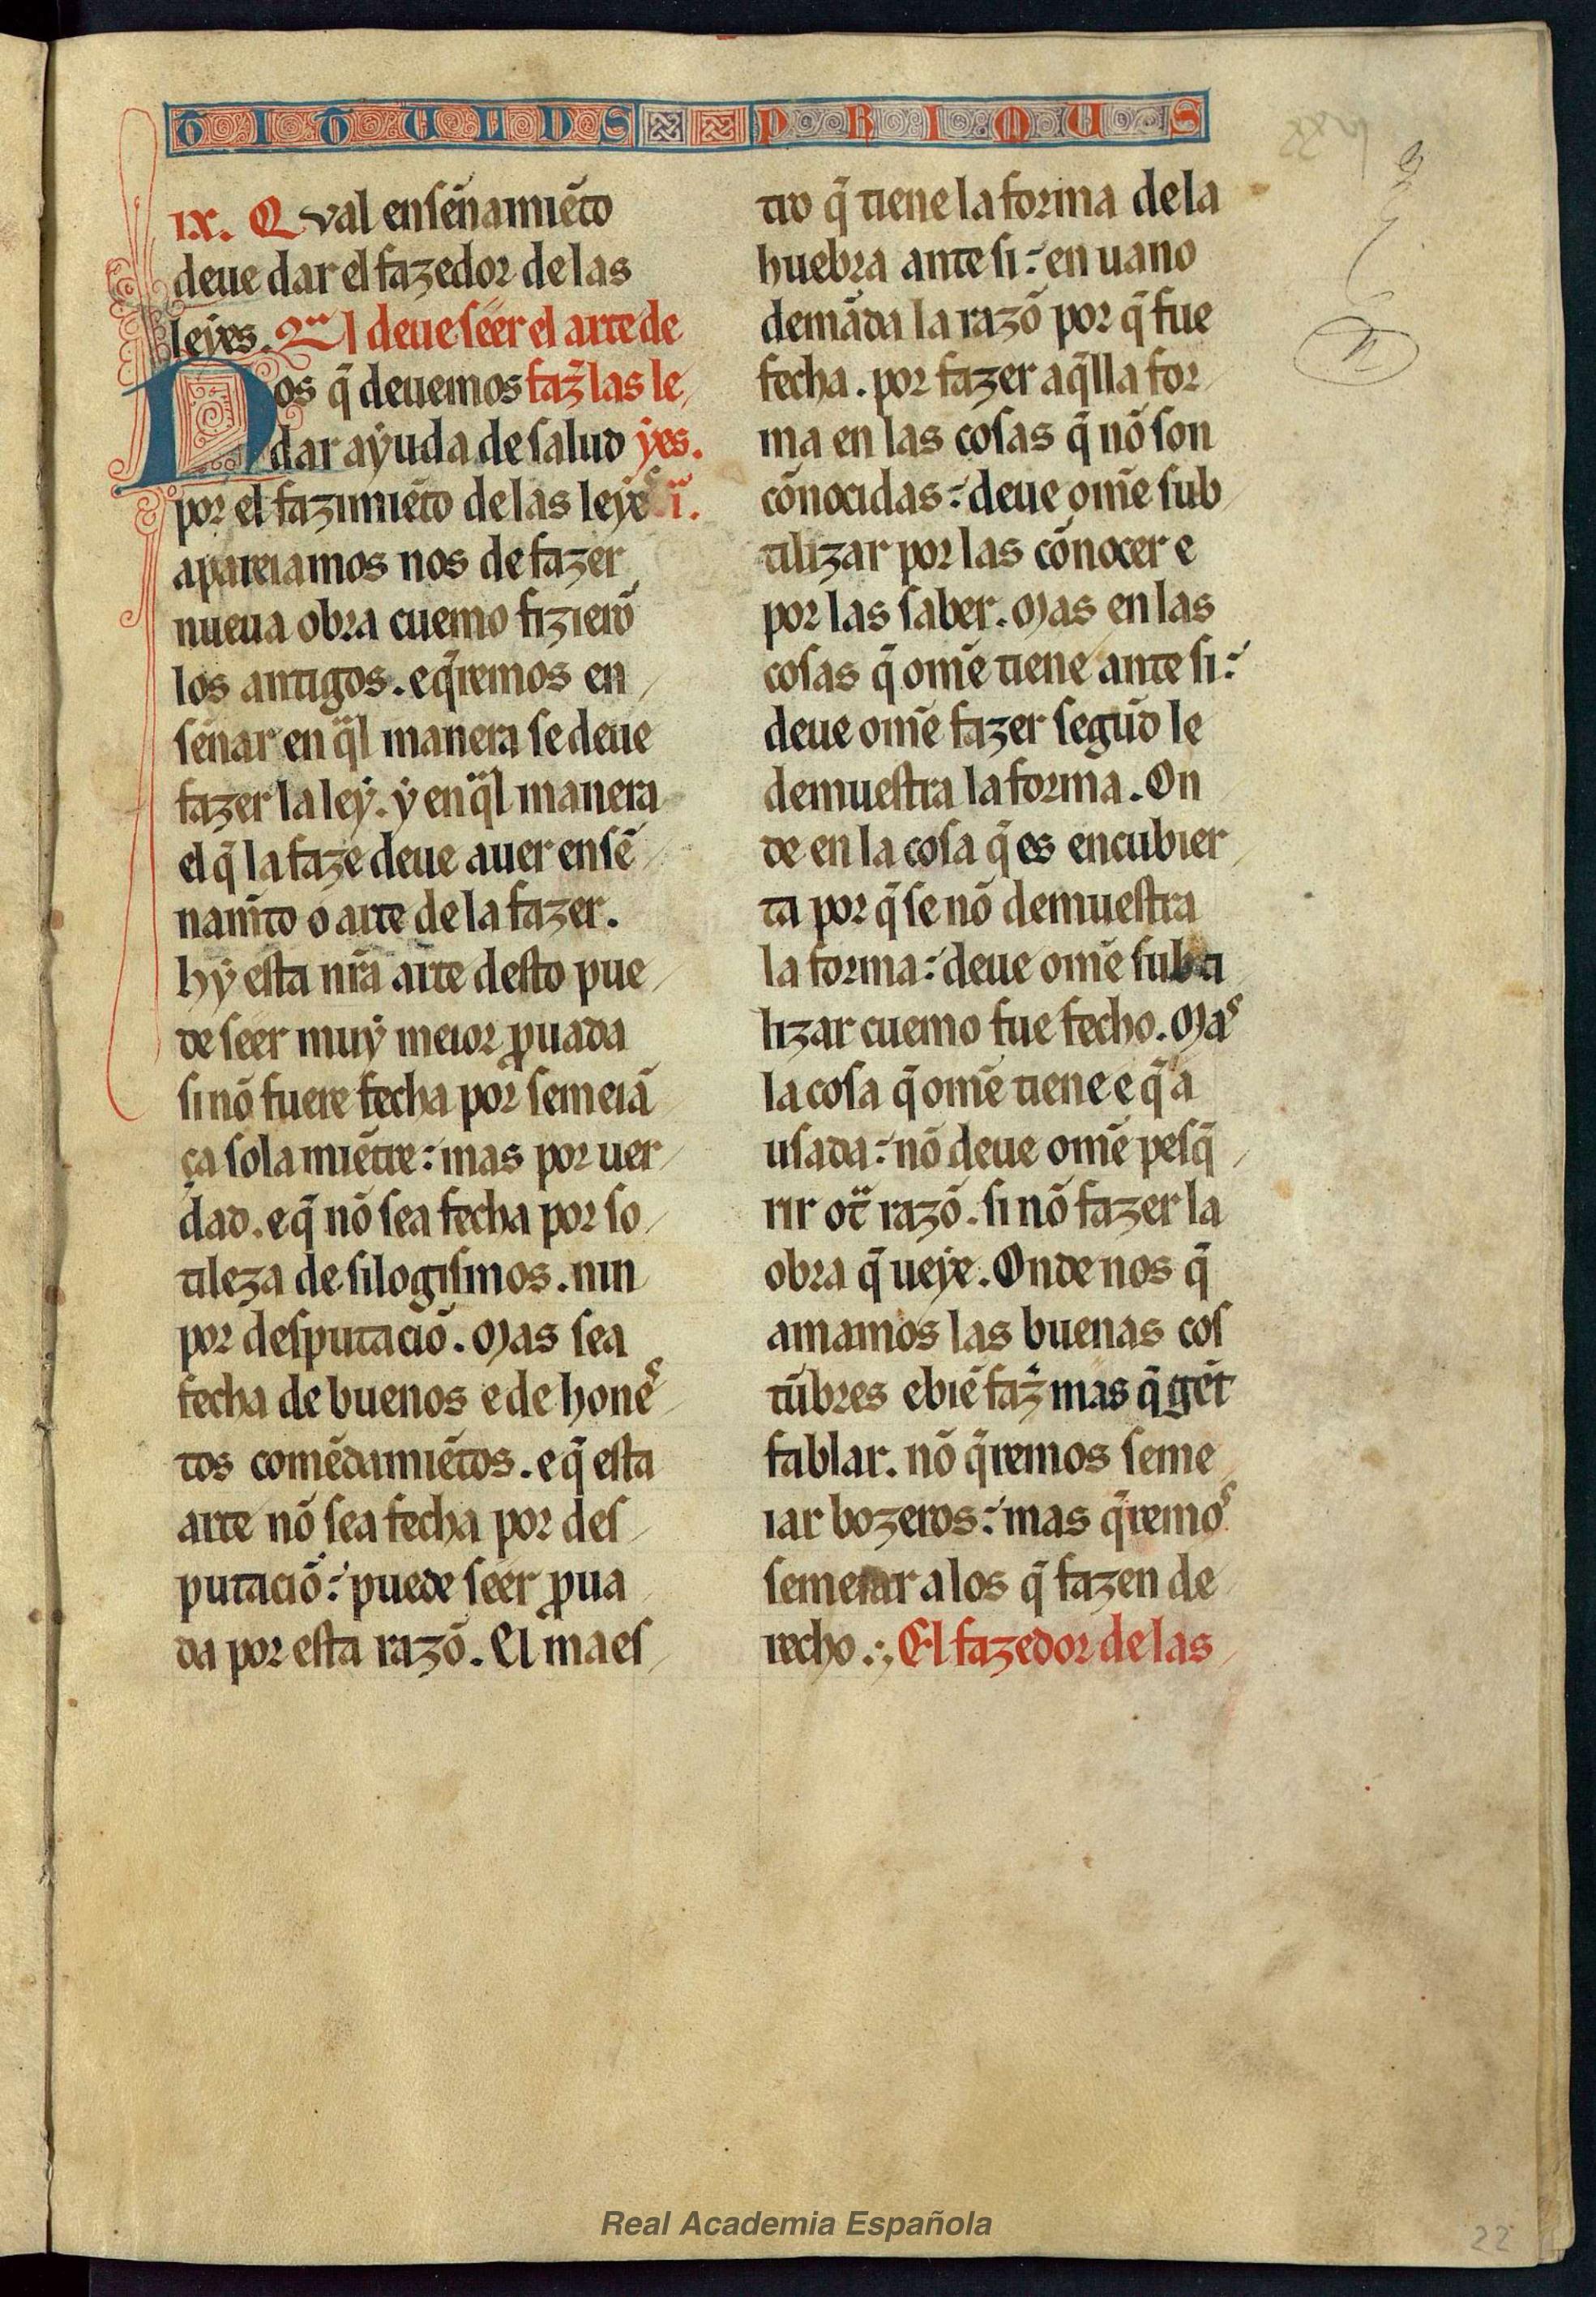 TITULUS PRIMUS
IX. Qval enseñamiẽto
deue dar el fazedor de las
leyes. Qͣl deue seer el arte de
Nos q̃ deuemos faz̃ las le
dar ayuda de salud yes.
por el fazimiẽto de las leyeˢ i.
apareiamos nos de fazer
nueua obra cuemo fizierõ
los antigos. e q̃remos en
señar en qͣl manera se deue
fazer la ley. y en qͣl manera
el q̃ la faze deue auer ensẽ
nam̃to o arte de la fazer.
hy esta nr̃a arte desto pue
de seer muy meior ꝓuada
si nõ fuere fecha por semeiã
ça sola miẽtre: mas por uer
dad. e q̃ nõ sea fecha por so
tileza de silogismos. nin
por desputaciõ. Mas sea
fecha de buenos e de honeˢ
tos comẽdamiẽtos. e q̃ esta
arte nõ sea fecha por des
putaciõ: puede seer ꝓua
da por esta razõ. El maes
tro q̃ tiene la forma de la
huebra ante si: en uano
demãda la razõ por q̃ fue
fecha. por fazer aq̃lla for
ma en las cosas q̃ nõ son
cõnocidas: deue om̃e sub
tilizar por las cõnocer e
por las saber. Mas en las
cosas q̃ om̃e tiene ante si:
deue om̃e fazer segũd le
demuestra la forma. On
de en la cosa q̃ es encubier
ta por q̃ se nõ demuestra
la forma: deue om̃e subti
lizar cuemo fue fecho. Maˢ
la cosa q̃ om̃e tiene e q̃ a
usada: nõ deue om̃e pesq̃
rir otͣ razõ. si nõ fazer la
obra q̃ ueye. Onde nos q̃
amamos las buenas cos
tũbres e biẽ faz̃ mas q̃ gẽt
fablar. nõ q̃remos seme
iar bozeros: mas q̃remoˢ
semeiar a los q̃ fazen de
recho.:, El fazedor de las
Real Academia Española
22